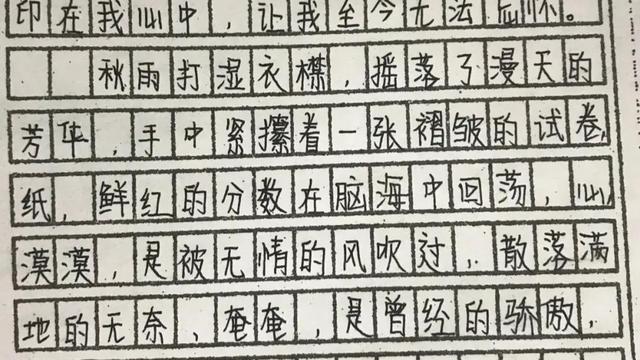 印在我心中，让我至今无法忘怀。
秋雨打湿衣襟，摇落了漫天的
芳华，手中紧攥着一张褶皱的试卷
纸，鲜红的分数在脑海中回荡，心
漠漠，是被无情的风吹过，散落满
地的无奈，奄奄，是曾经的骄傲，